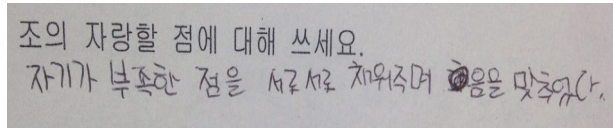 조의 자랑할 점에 대해 쓰세요.
자기가 부족한 점을 서로서로 채워주며 호흡을 맞추었다.